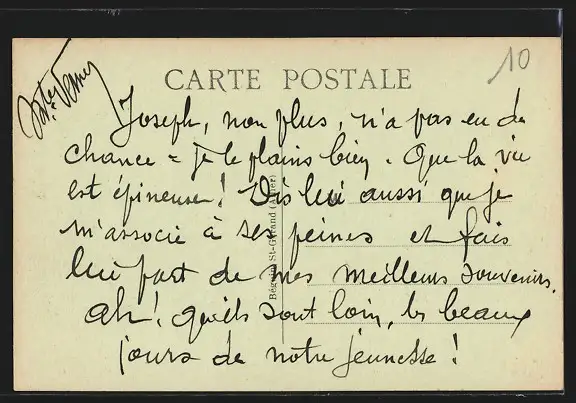 10
CARTE POSTALE
Joseph, non plus, n'a pas eu de
chance = je le plains bien. Que la vie
est épineuse! Dis lui aussi que je
m'associe à ses peines et fais
lui part de mes meilleurs souvenirs.
Ah! qu'ils sont loin, les beaux
jours de notre jeunesse!
St-Gérand (Allier)